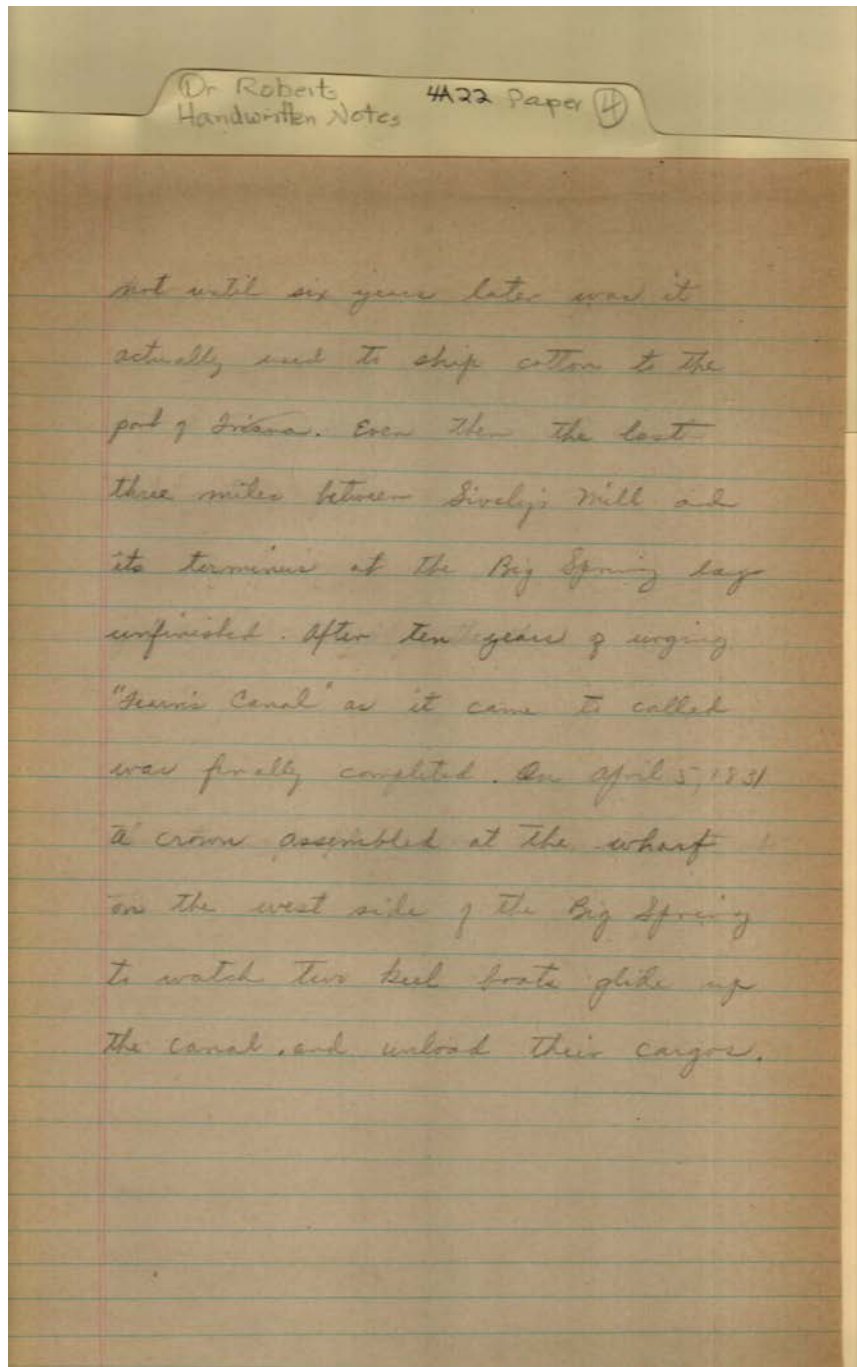 Dr Roberts 4A22 Paper 4
Handwritten Notes
not until six years later was it
actually used to ship cotton to the
port of Triana. Even then the last
three miles between Sively's Mill and
its terminus at the Big Spring lay
unfinished. After ten years of urging
"Fearn's Canal" as it came to called
was finally completed. On April 5, 1831
a crown assembled at the wharf
on the west side of the Big Spring
to watch two keel boats glide up
the canal, and unload their cargos.